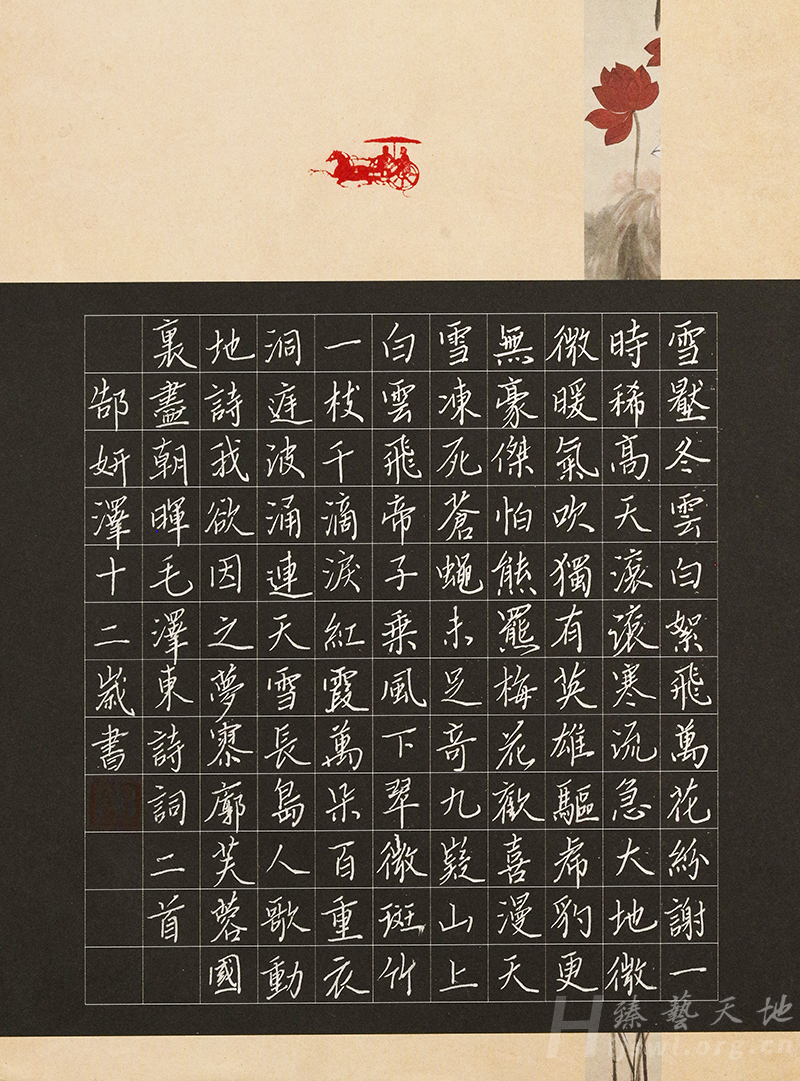 雪壓冬雲白絮飛萬花紛謝一
時稀高天滾滾寒流急大地微
微暖氣吹獨有英雄驅虎豹更
無豪傑怕熊羆梅花歡喜漫天
雪凍死蒼蠅未足奇九嶷山上
白雲飛帝子乘風下翠微斑竹
一枝千滴淚紅霞萬朵百重衣
洞庭波涌連天雪長島人歌動
地詩我欲因之夢寥廓芙蓉國
裏盡朝暉毛澤東詩詞二首
郜妍澤十二歲書
臻藝天地